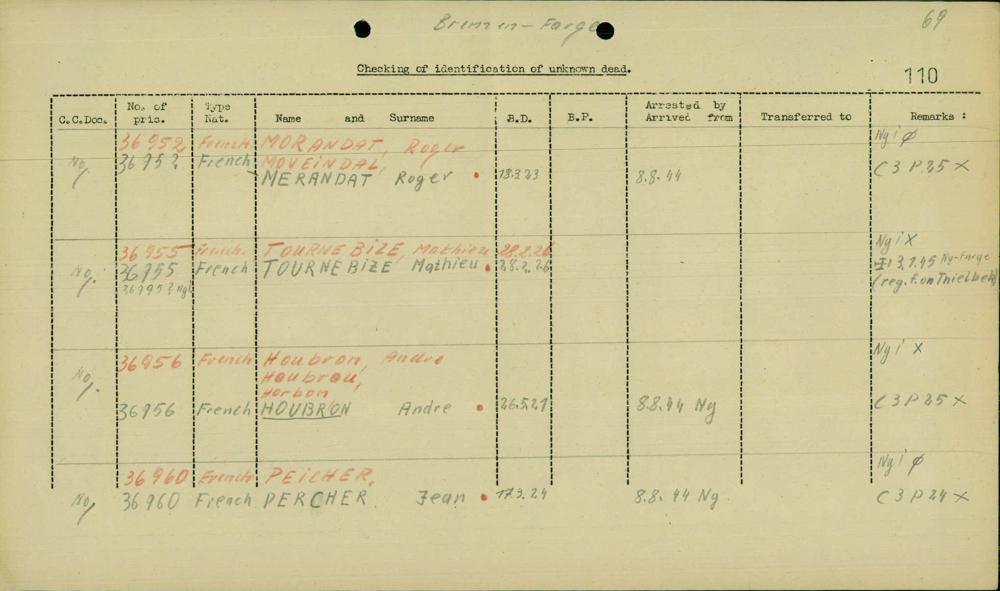 Bremen-Farge
69
Checking of identification of unknown dead.
110
C.C.Doc. No. of pris. Type Nat. Name and Surname B.D. B.P. Arrested by Arrived from Transferred to Remarks :
36952 French MORANDAT, Roger Ng i ø
No, 36952 French MOVEINDAL, C 3 P.25 X
MERANDAT Roger 18.3.23 8.8.44
36955 French. TOURNEBIZE, Mathieu 28.2.26 Ng i X
No. 36955 French TOURNEBIZE Mathieu 28.2.26 3.1.45 Ng-Farge
36952 Ng (reg. f. on Thielbek)
36956 French Houbron, Andre Ng i X
No. Houbrou,
Horbon
36956 French HOUBRON Andre 26.5.21 8.8.44 Ng C 3 P 25 X
36960 French PEICHER, Ng i ø
No, 36960 French PERCHER Jean 17.9.24 8.8.44 Ng C 3 P 24 X